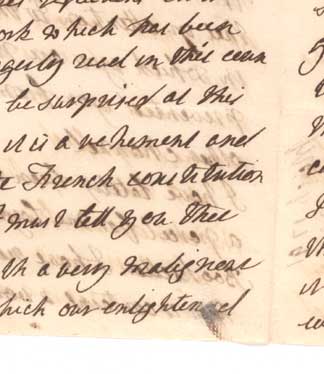 ork which has been
read in this coun
be surprised at this
it is a vehement and
French constitution
must tell you that
th a very malignent
hich our enlightened